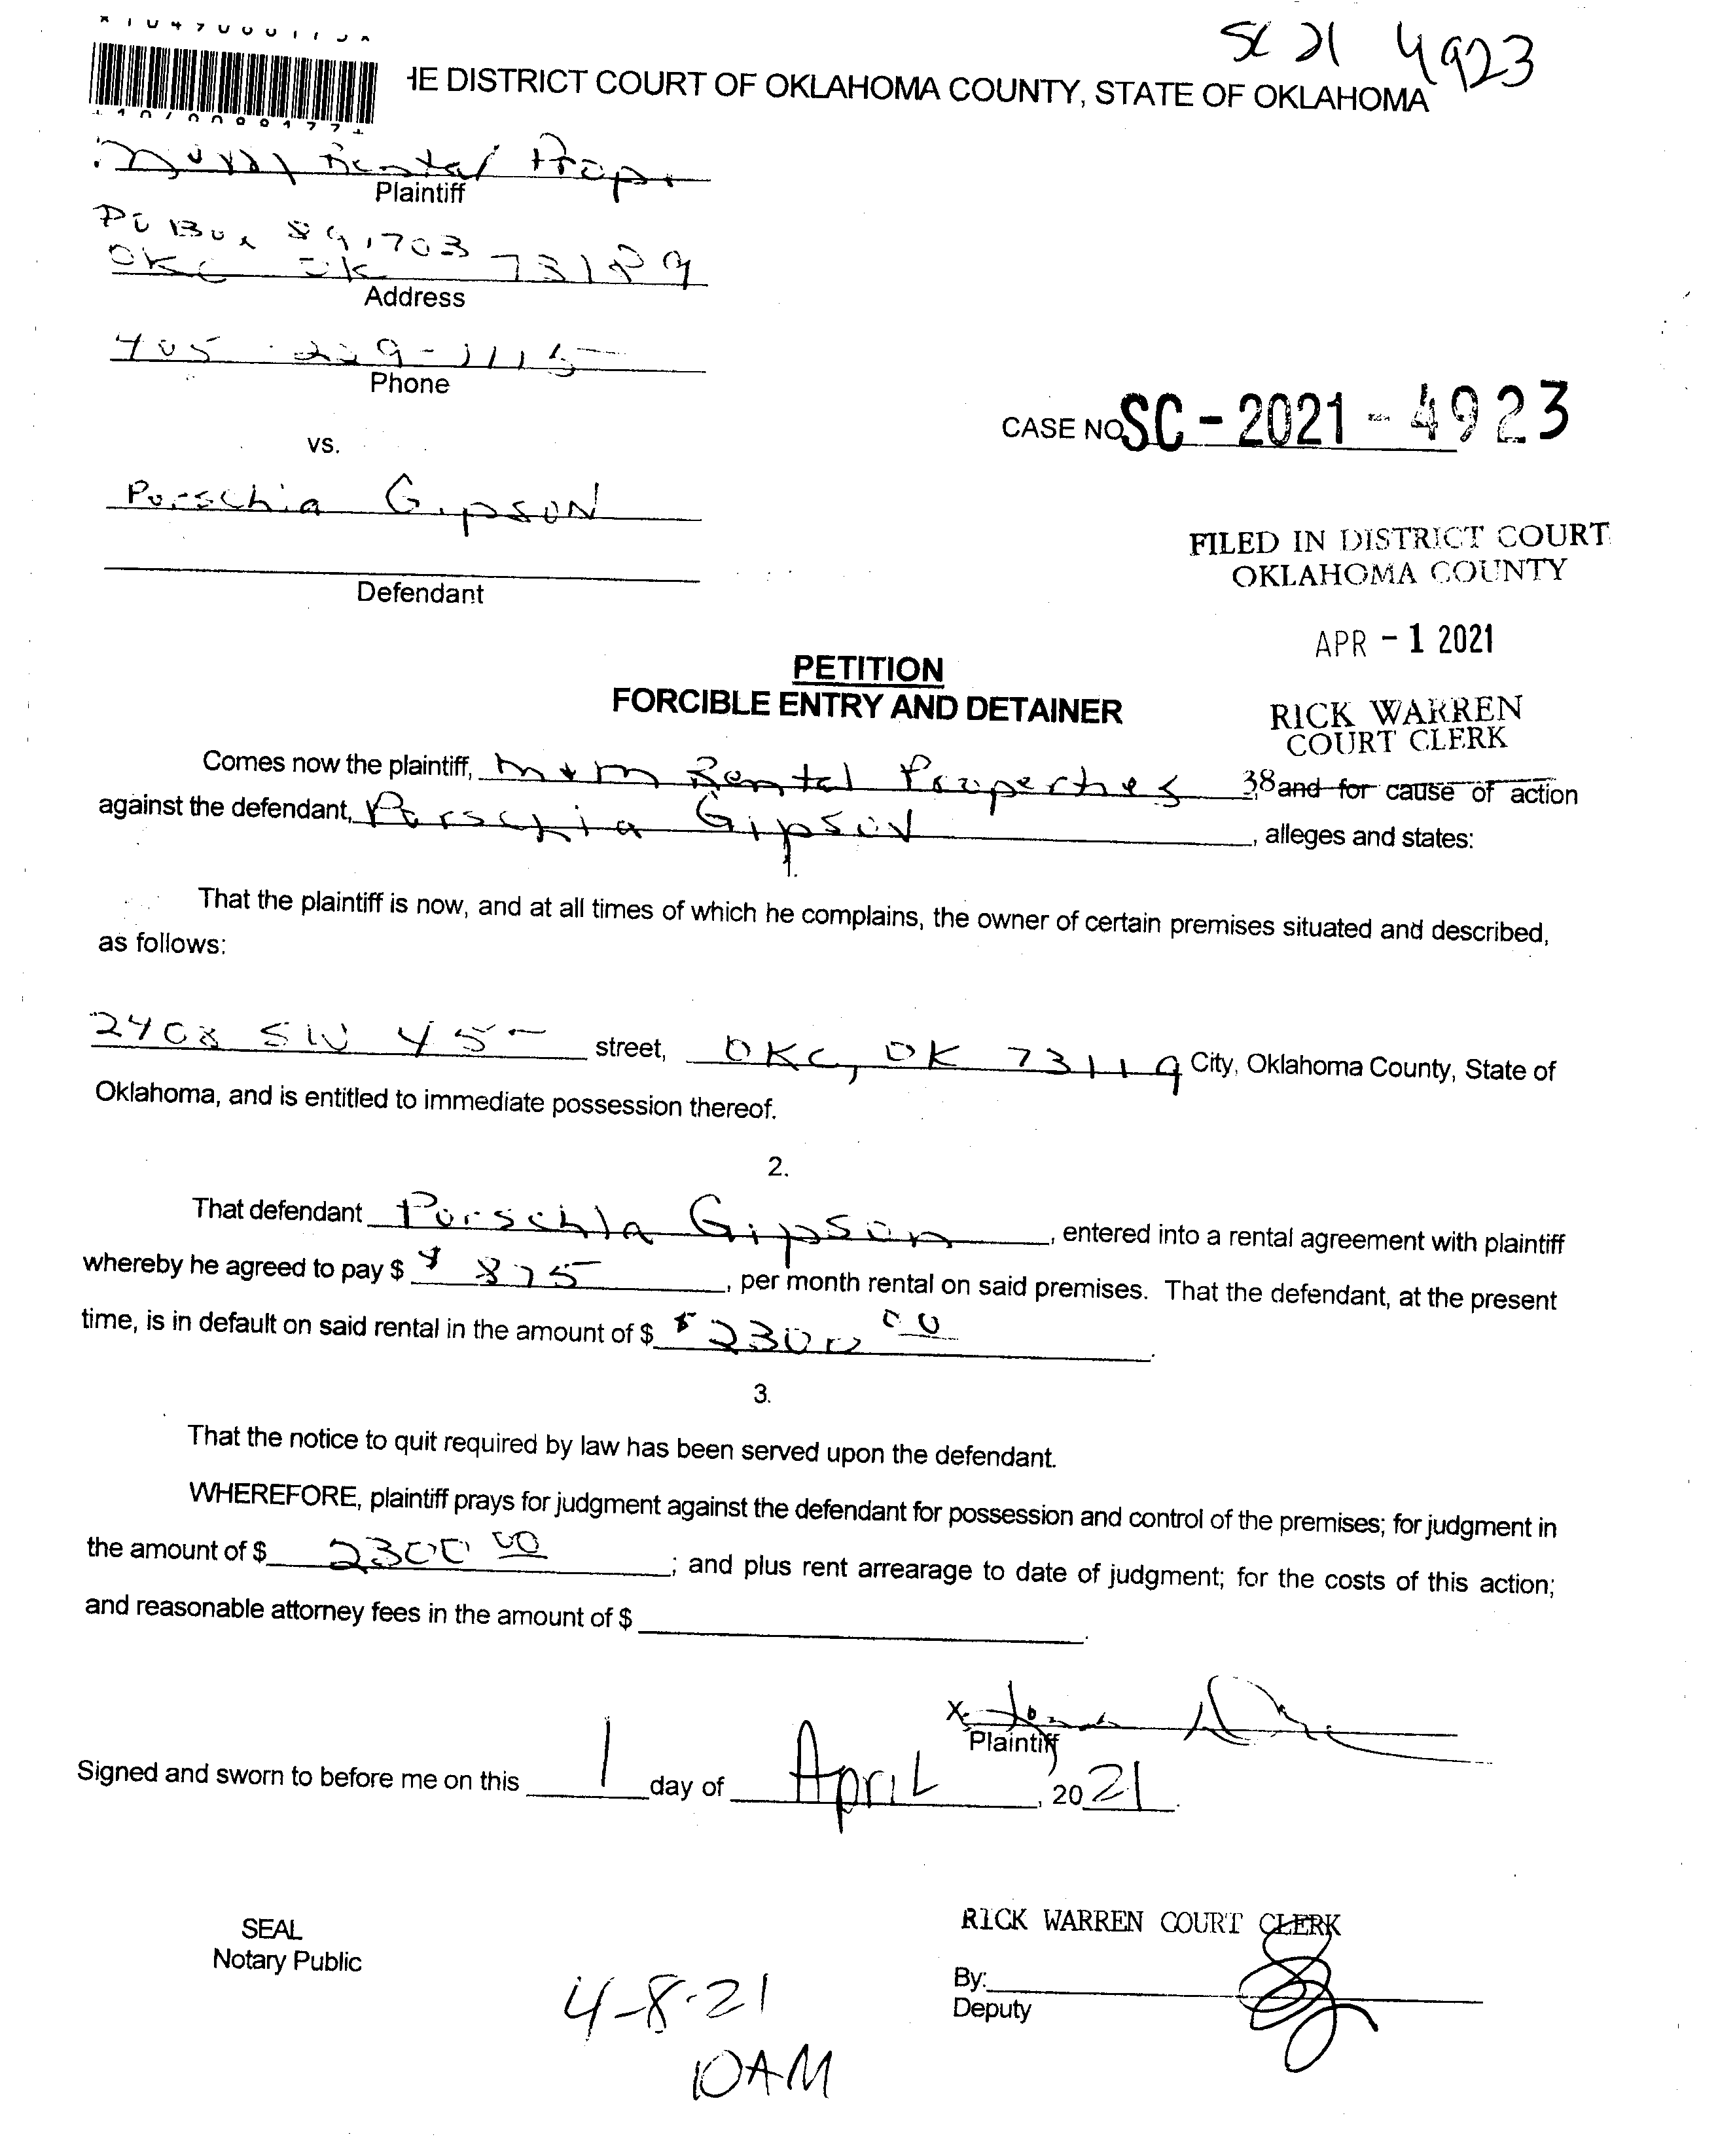 SC 21 4923
HE DISTRICT COURT OF OKLAHOMA COUNTY, STATE OF OKLAHOMA
Rental Prop
Plaintiff
PO Box 891703
OKC OK 73189
Address
405-229-1115
Phone
vs.
CASE NO SC-2021-4923
Porschia Gipson
Defendant
FILED IN DISTRICT COURT
OKLAHOMA COUNTY
APR -1 2021
RICK WARREN
COURT CLERK
38
PETITION
FORCIBLE ENTRY AND DETAINER
Comes now the plaintiff, M+M Rental Properties and for cause of action
against the defendant, Porschia Gipson, alleges and states:
1.
That the plaintiff is now, and at all times of which he complains, the owner of certain premises situated and described,
as follows:
2408 SW 45 street, OKC, OK 73119 City, Oklahoma County, State of
Oklahoma, and is entitled to immediate possession thereof.
2.
That defendant Porschia Gipson, entered into a rental agreement with plaintiff
whereby he agreed to pay $ $ 875, per month rental on said premises. That the defendant, at the present
time, is in default on said rental in the amount of $ $2300 00.
3.
That the notice to quit required by law has been served upon the defendant.
WHEREFORE, plaintiff prays for judgment against the defendant for possession and control of the premises; for judgment in
the amount of $ 2300 00; and plus rent arrearage to date of judgment; for the costs of this action;
and reasonable attorney fees in the amount of $
X
Plaintiff
Signed and sworn to before me on this 1 day of April, 2021.
SEAL
Notary Public
RICK WARREN COURT CLERK
By:
Deputy
4-8-21
10AM